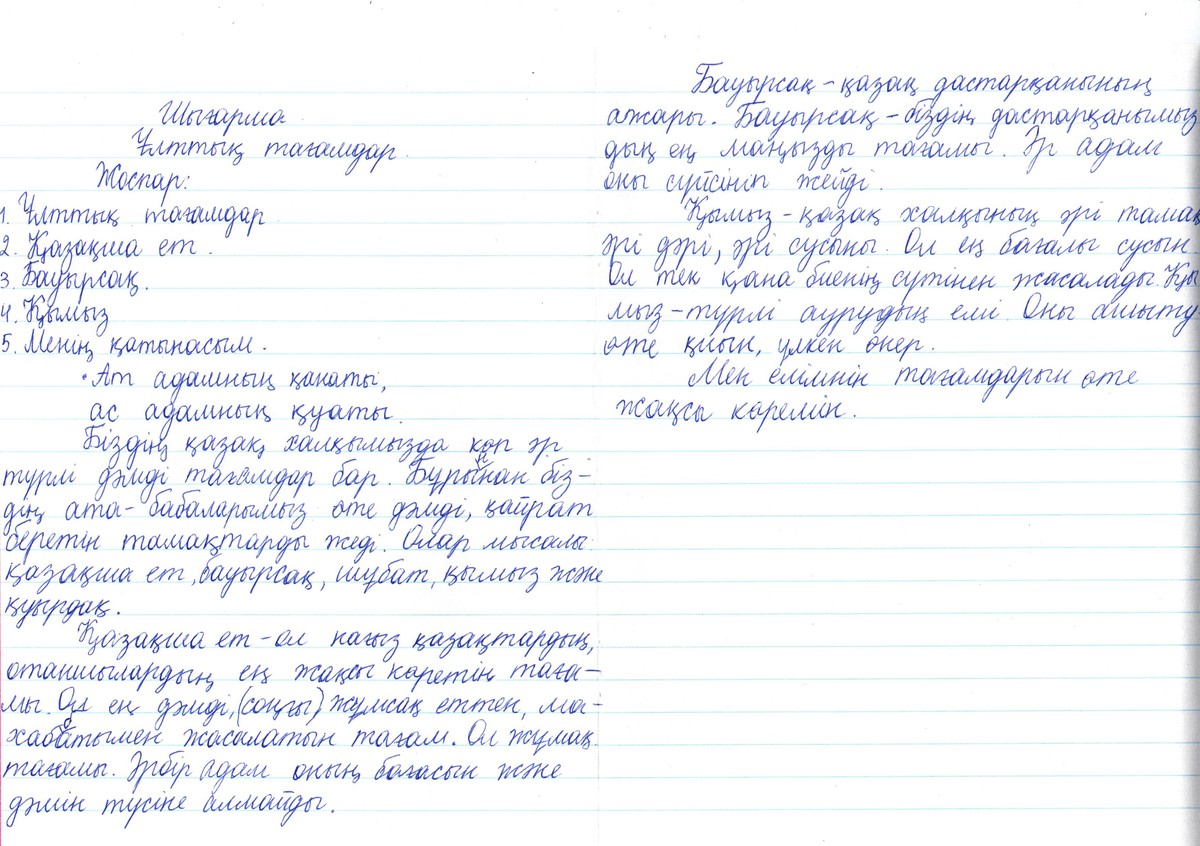 Шығарма
Ұлттық тағамдар.
Жоспар:
1. Ұлттық тағамдар
2. Қазақша ет.
3. Бауырсақ.
4. Қымыз
5. Менің қатынасым.
Ат адамның қанаты,
ас адамның қуаты.
Біздің қазақ халқымызда көп әр
түрлі дәмді тағамдар бар. Бұрыннан біз-
дің ата-бабаларымыз өте дәмді, қайрат
беретін тамақтарды жеді. Олар мысалы:
қазақша ет, бауырсақ, шұбат, қымыз және
қуырдақ.
Қазақша ет - ол нағыз қазақтардың,
отаншылардың ең жақсы көретін таға-
мы. Ол ең дәмді, (соңғы) жұмсақ еттен, ма-
хабатымен жасалатын тағам. Ол жұмақ
тағамы. Әрбір адам оның бағасын және
дәмін түсіне алмайды.
Бауырсақ - қазақ дастарқанының
ажары. Бауырсақ - біздің дастарқанымыз
дың ең маңызды тағамы. Әр адам
оны сүйсініп жейді.
Қымыз - қазақ халқының әрі тамақ
әрі дәрі, әрі сусыны. Ол ең бағалы сусын.
Ол тек қана биенің сүтінен жасалады. Қы
мыз - түрлі аурудың емі. Оны ашыту
өте қиын, үлкен өнер.
Мен елімнін тағамдарын өте
жақсы көремін.